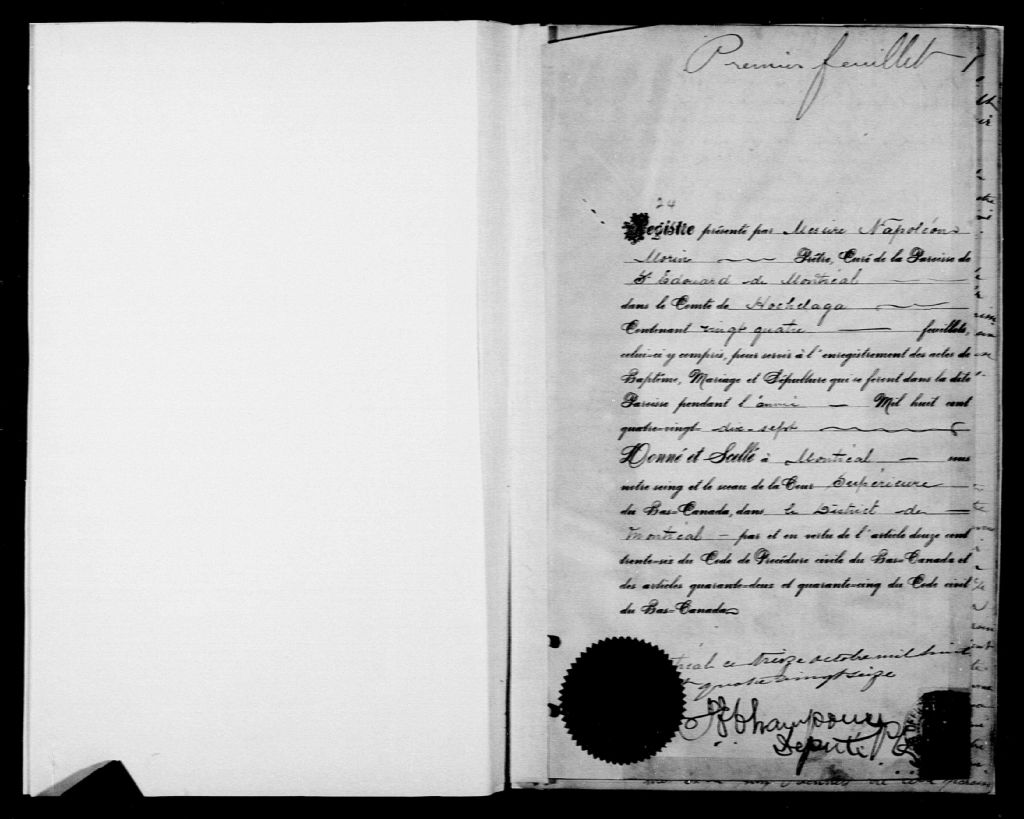 Premier feuillet
24
Registre présenté par Messire Napoléon
Morin Prêtre, Curé de la Paroisse de
St Edouard de Montréal
dans le Comté de Hochelaga
Contenant vingt quatre feuillets,
celui-ci y compris, pour servir à l'enregistrement des actes de
Baptême, Mariage et Sépulture qui se feront dans la dite
Paroisse pendant l'année Mil huit cent
quatre-vingt dix-sept
Donné et Scellé à Montréal sous
notre seing et le sceau de la Cour Supérieure
du Bas-Canada, dans le District de
Montréal par et en vertu de l'article douze cent
trente-six du Code de Procédure civile du Bas-Canada et
des articles quarante-deux et quarante-cinq du Code civil
du Bas-Canada
ce treize octobre mil huit
quatre vingt seize
Député